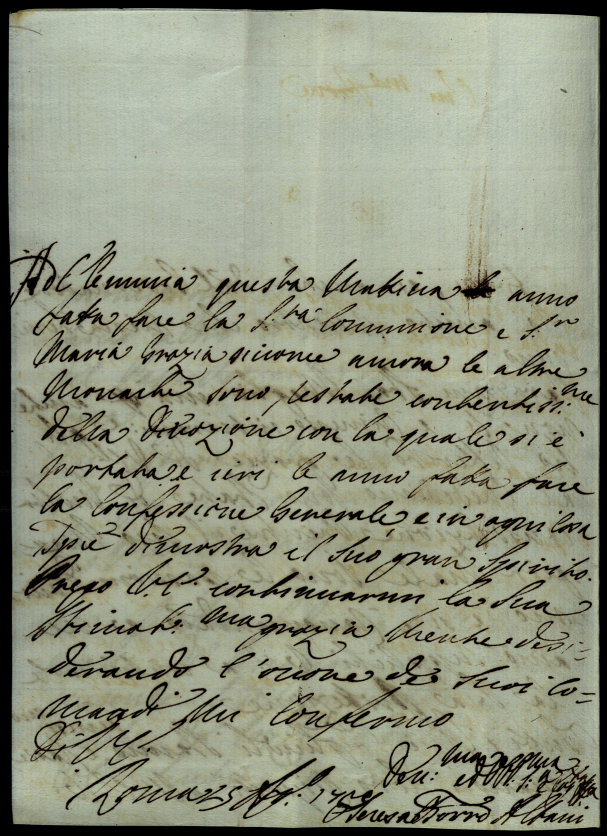 A d Clemenza questa Matina le anno
fatta fare la S.ta Comunione e S.r
Maria Grazia sicome ancora le altre
Monache sono restate contentissi.me
della Divozione con la quale si è
portata e ieri le anno fatta fare
la Confessione Generale e in ogni Cosa
dimostra il suo gran Spirito.
Prego V.E. continuarmi la Sua
Stimat.ma grazia mentre desi=
derando l'onore de Suoi Co=
mandi mi Confermo
Di V.E.
Roma 25
Teresa Albani